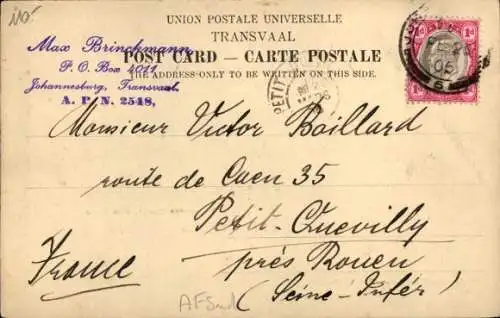 UNION POSTALE UNIVERSELLE
TRANSVAAL
POST CARD — CARTE POSTALE
THE ADDRESS ONLY TO BE WRITTEN ON THIS SIDE.
Max Brinckmann
P. O. Box 4011
Johannesburg, Transvaal.
A. P. N. 2518,
Monsieur Victor Baillard
route de Caen 35
Petit-Quevilly
près Rouen
(Seine-Infér)
France